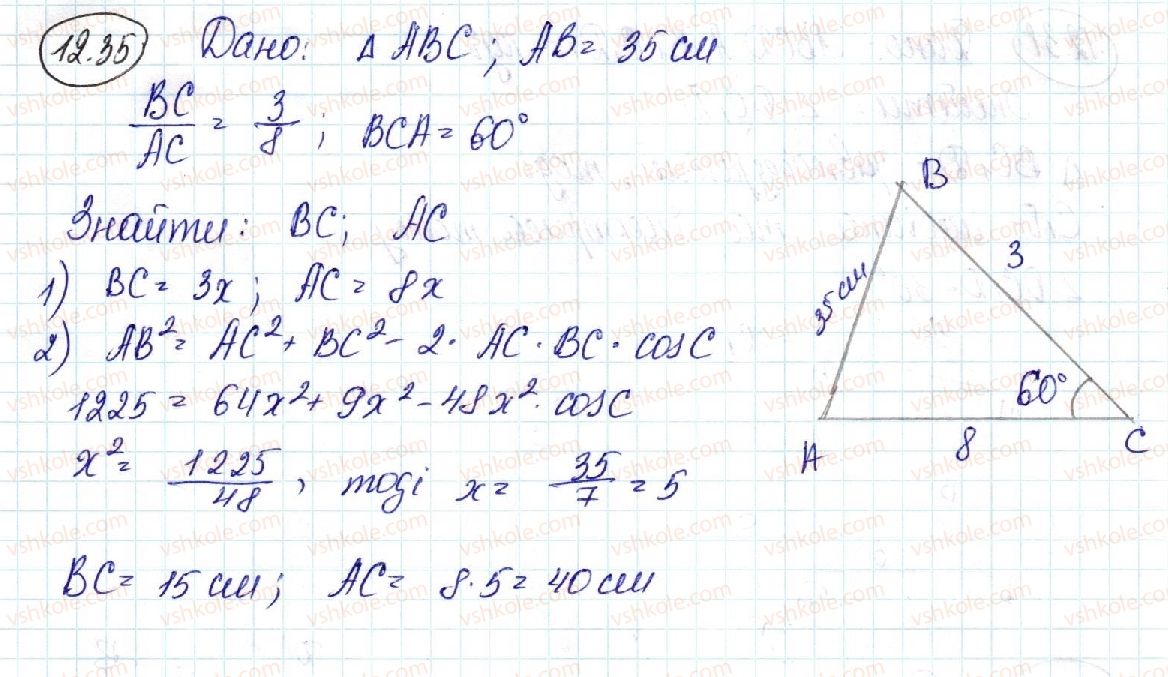 12.35 Дано: Δ ABC; AB = 35 см
BC/AC = 3/8; BCA = 60°
Знайти: BC; AC
1) BC = 3x; AC = 8x
2) AB² = AC² + BC² - 2 · AC · BC · cos C
1225 = 64x² + 9x² - 48x² · cos C
x² = 1225/48, тоді x = 35/7 = 5
BC = 15 см; AC = 8·5 = 40 см
B
35 см
3
60°
A
8
C
vshkole.com